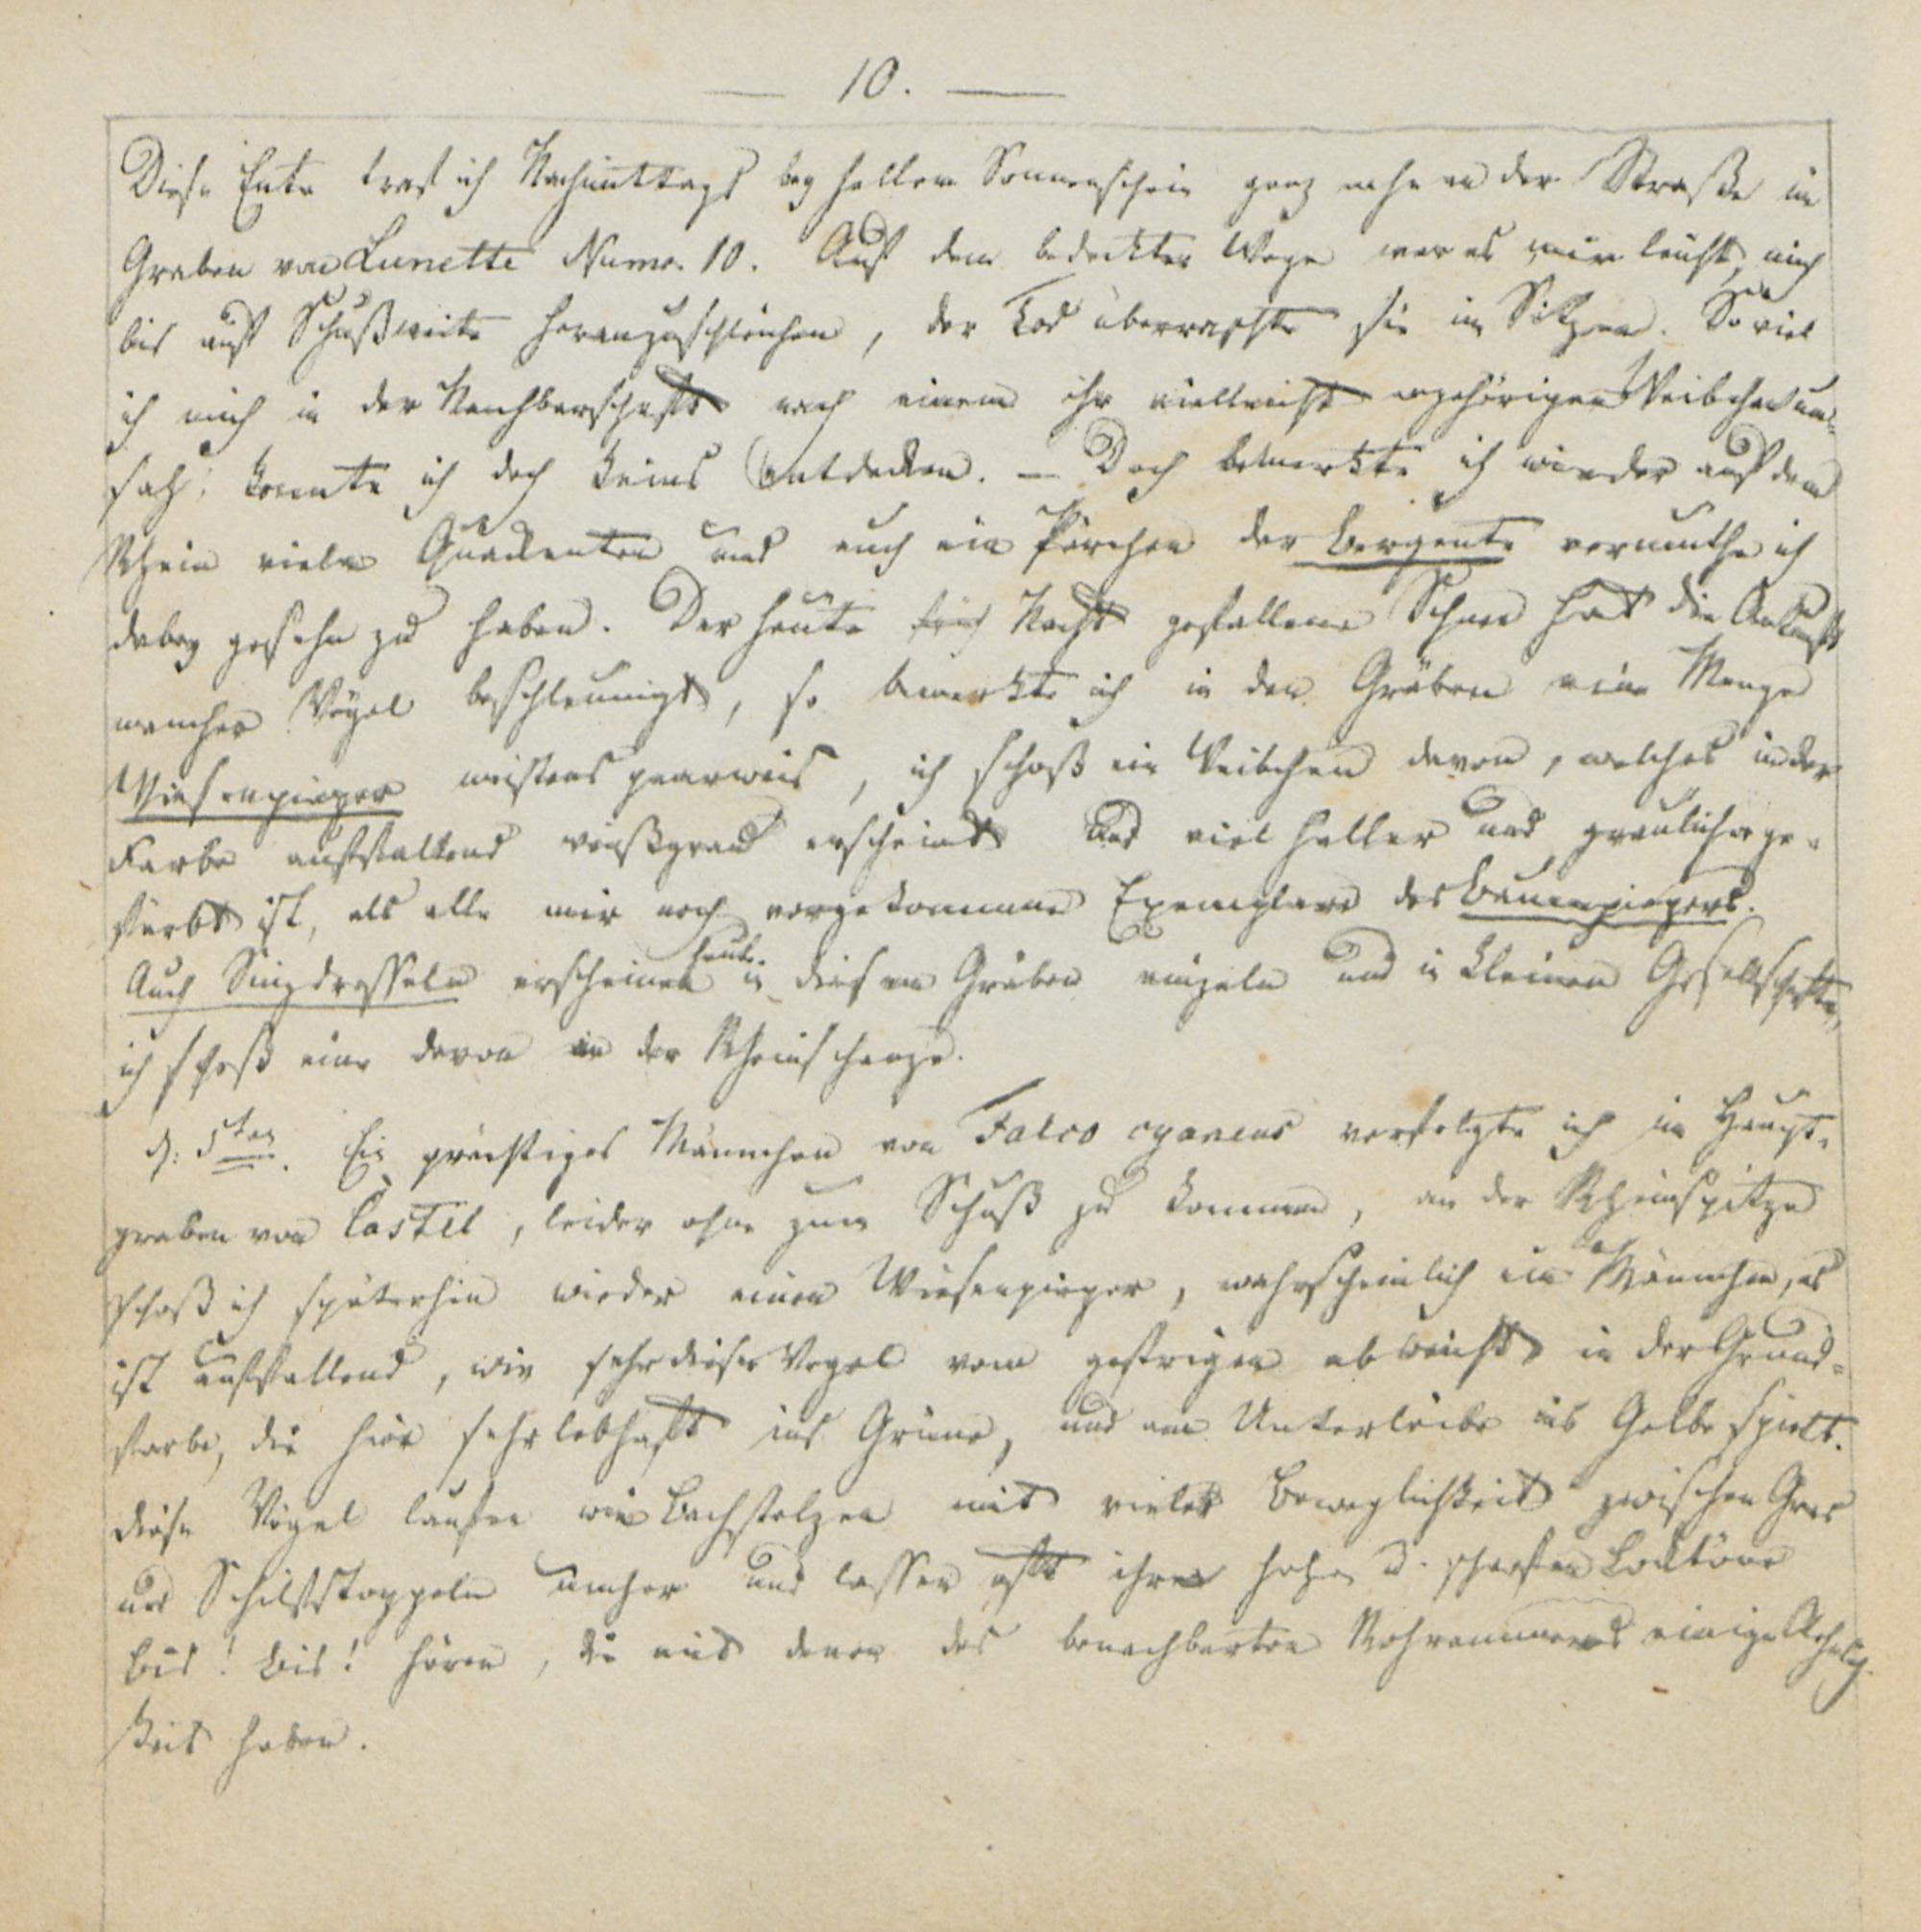 — 10. —
Diese Ente traf ich Nachmittags bey hellem Sonnenschein ganz nahe an der Straße im
Graben von Lunette Numo. 10. Auf dem bedeckten Wege war es mir leicht, mich
bis auf Schußweite heranzuschleichen, der Tod überraschte sie im Sitzen. So viel
ich mich in der Nachbarschaft nach einem ihr vielleicht angehörigen Weibchen um=
sah, konnte ich doch keins entdecken. – Doch bemerkte ich wieder auf dem
Rhein viele Quackenten und auch ein Pärchen der Bergente vermuthe ich
dabey gesehn zu haben. Der heute Nacht gefallene Schnee hat die Ankunft
mancher Vögel beschleunigt, so bemerkte ich in den Gräben eine Menge
Wiesenpieper meistens paarweis, ich schoß ein Weibchen davon, welches in der
Farbe auffallend weißgrau erscheint und viel heller und graulicher ge=
färbt ist, als alle mir noch vorgekommene Exemplare des Baumpiepers.
Auch Singdrosseln erscheinen heute in diesen Gräben einzeln und in kleinen Gesellschaften,
ich schoß eine davon in der Rheinschanze.
d: 5ten. Ein prächtiges Männchen von Falco cyaneus verfolgte ich im Haupt=
graben von Castel, leider ohne zum Schuß zu kommen, an der Rheinspitze
schoß ich späterhin wieder einen Wiesenpieper, wahrscheinlich ein Männchen, es
ist auffallend, wie sehr dieser Vogel vom gestrigen abweicht in der Grund=
farbe, die hier sehr lebhaft ins Grüne, und am Unterleibe ins Gelbe spielt.
diese Vögel laufen wie Bachstelzen mit vieler Beweglichkeit zwischen Gras
und Schilfstoppeln umher und lassen oft ihre hohen u. scharfen Locktöne
bis! bis! hören, die mit denen des benachbarten Rohrammers einige Aehnlich
keit haben.